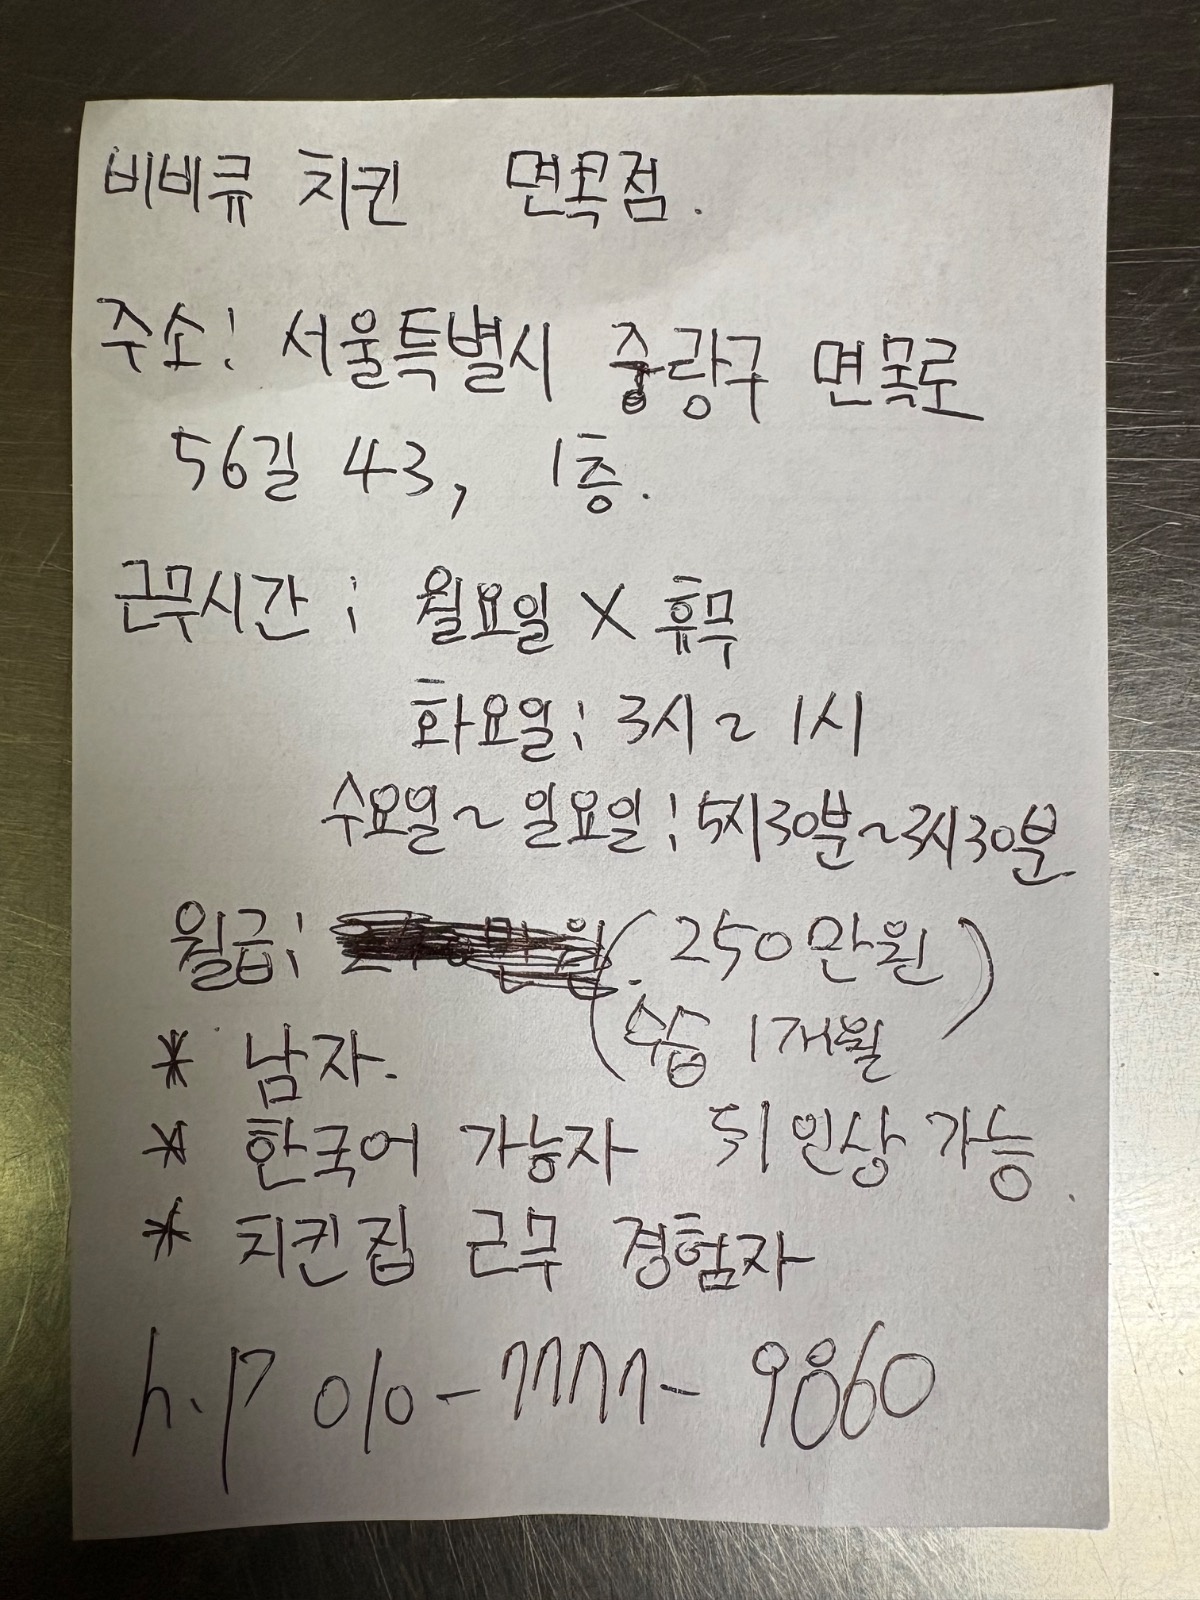 비비큐 치킨 면목점.
주소: 서울특별시 중랑구 면목로
56길 43, 1층.
근무시간: 월요일 X 휴무
화요일: 3시~1시
수요일~일요일: 5시30분~3시30분
월급: (250만원)
(수습 1개월
* 남자.
* 한국어 가능자 뒤 인상 가능.
* 치킨집 근무 경험자
h.p 010-7777-9860